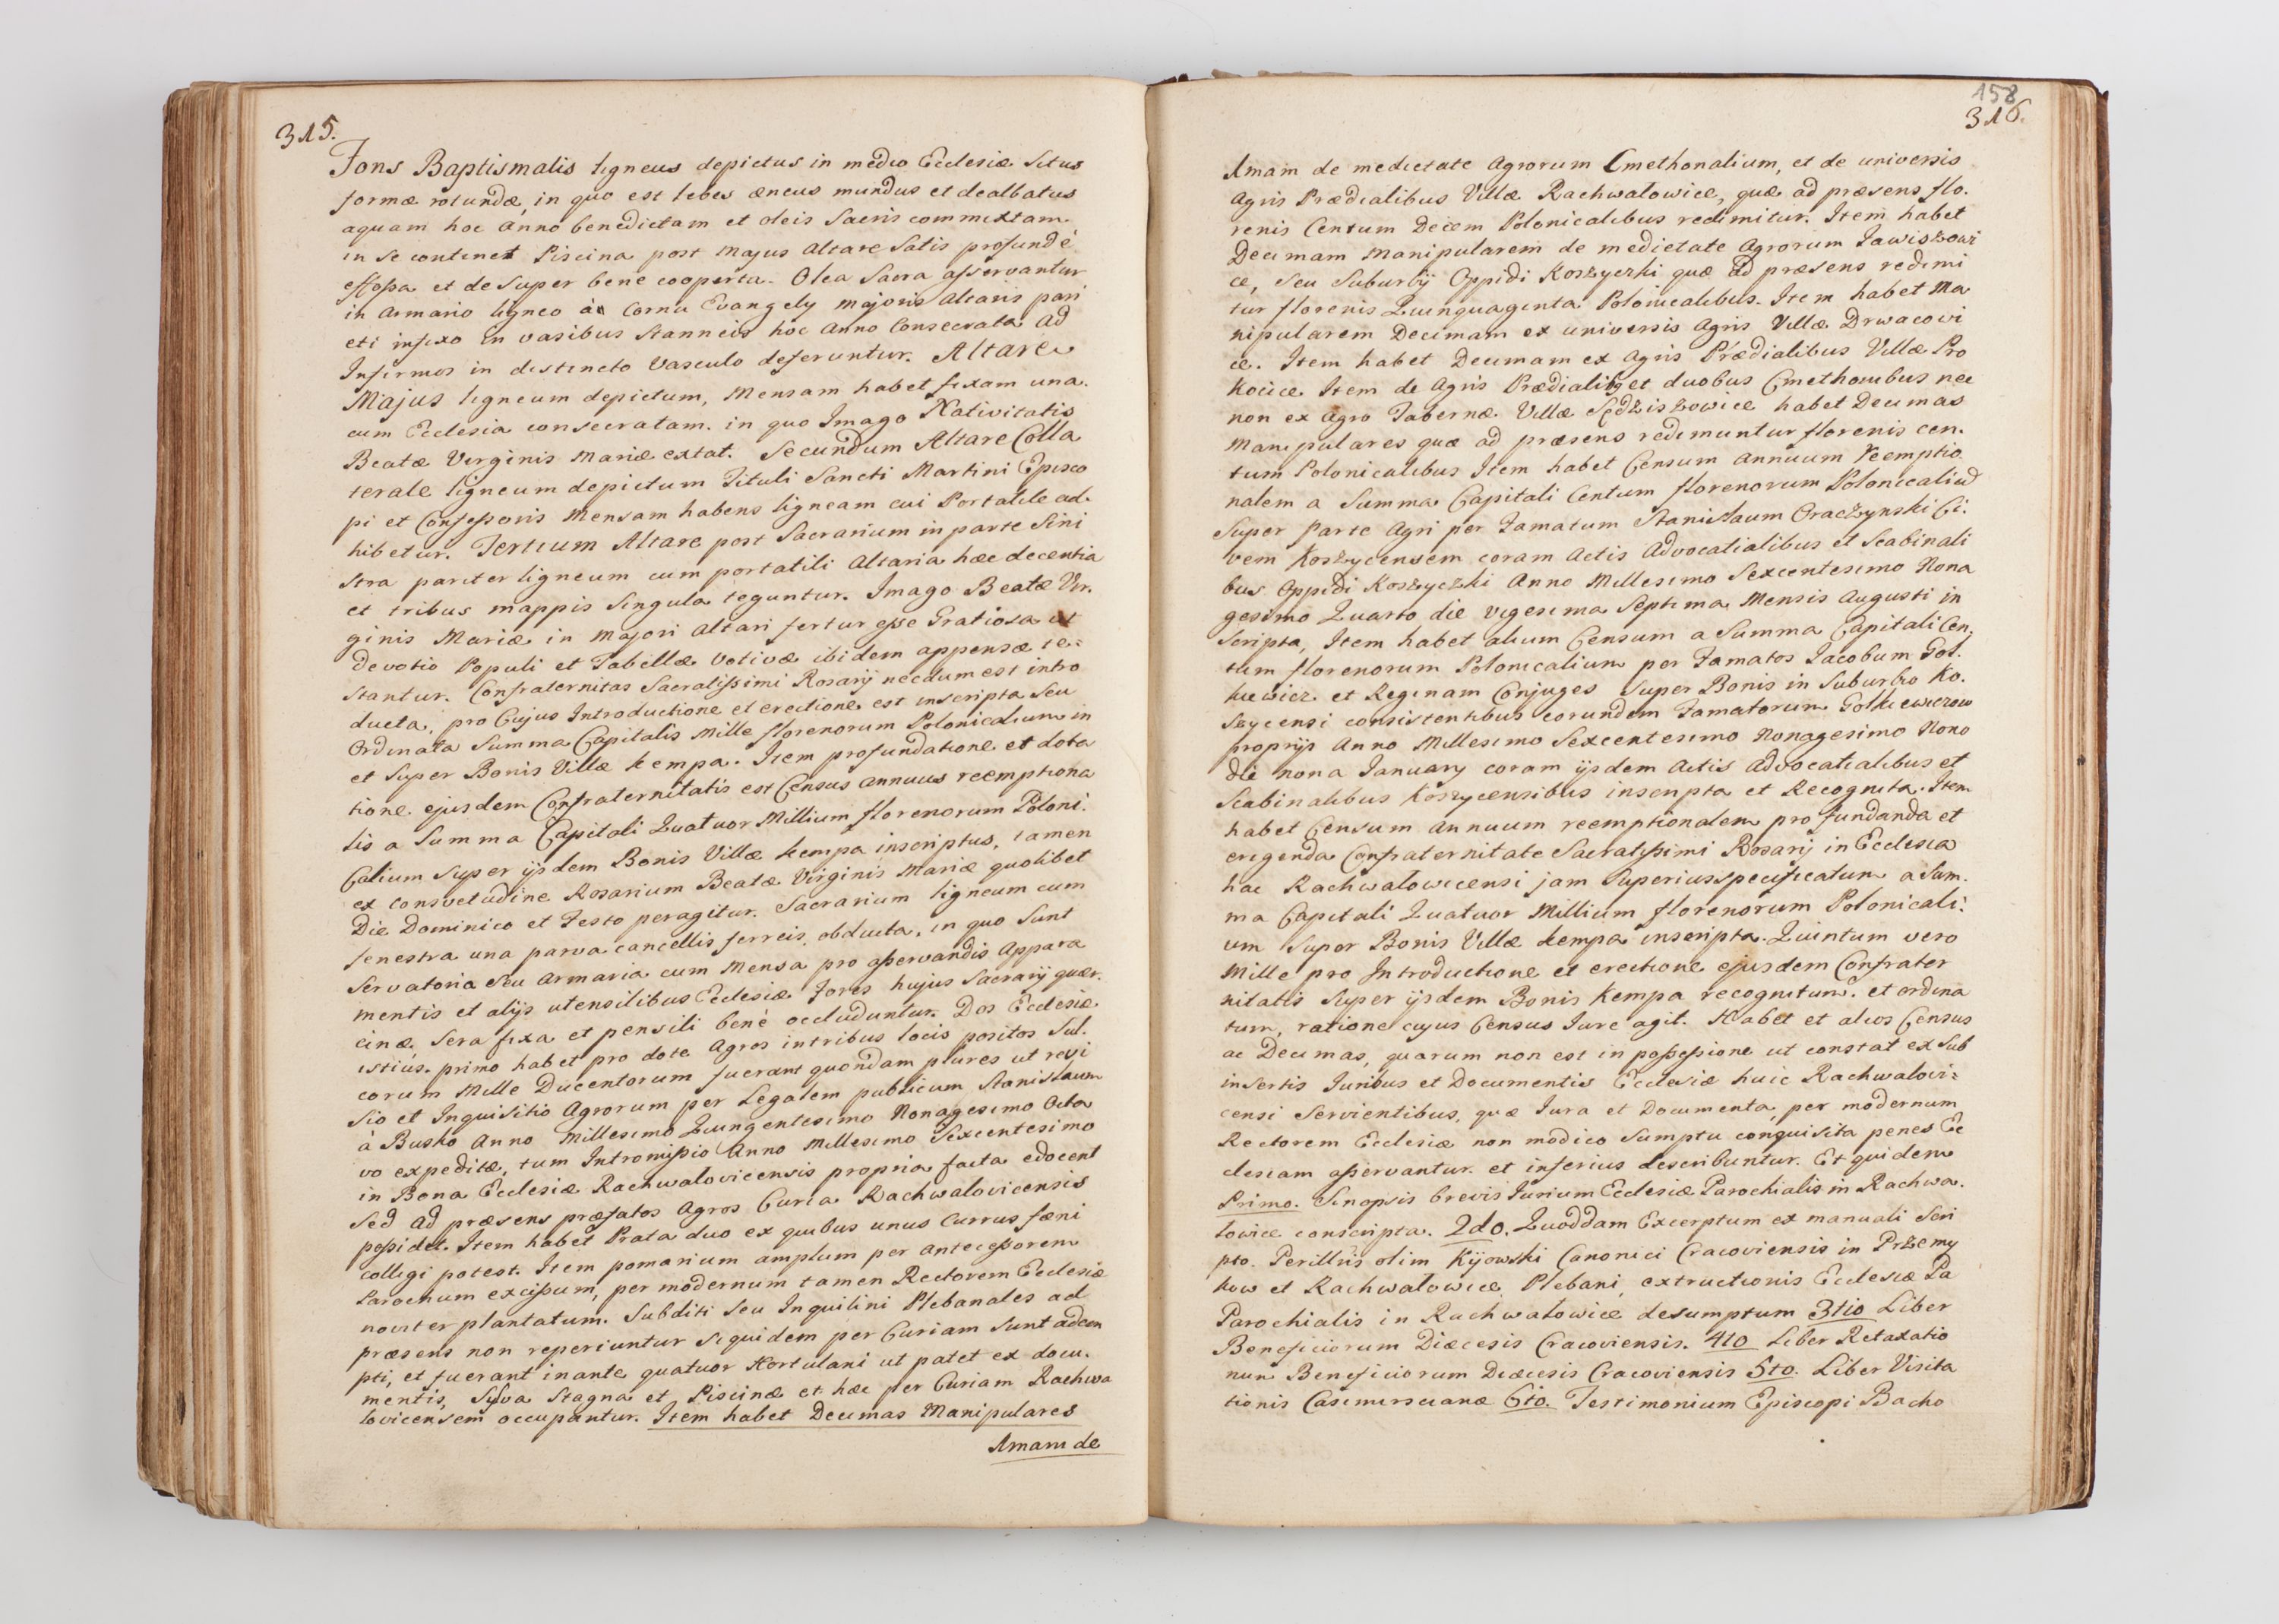 315.
Fons Baptismalis ligneus depictus in medio Ecclesiæ Situs
formæ rotundæ, in quo est lebes æneus mundus et dealbatus
aquam hoc Anno benedictam et oleis Sacris commixtam
in Se continet Piscina post Majus Altare Satis profundé
effossa et desuper bene cooperta. Olea Sacra asservantur
in Armario ligneo à Cornu Evangelij majoris Altaris pari
eti infixo in vasibus Stanneis hoc Anno Consecrata Ad
Infirmos in distincto Vasculo deferuntur. Altare
Majus ligneum depictum, Mensam habet fixam una
cum Ecclesia consecratam. in quo Imago Nativitatis
Beatæ Virginis Mariæ extat. Secundum Altare Colla
terale ligneum depictum Tituli Sancti Martini Episco
pi et Confessoris Mensam habens ligneam cui Portatile ad
hibetur. Tertium Altare post Sacrarium in parte Sini
stra pariter ligneum cum portatili Altaria hæc decentia
et tribus mappis Singula teguntur. Imago Beatæ Vir.
ginis Mariæ in Majori Altari fertur esse Gratiosa ut
devotio Populi et Tabellæ Votivæ ibidem appensæ te=
stantur. Confraternitas Sacratissimi Rosarij necdum est intro
ducta, pro Cujus Introductione et erectione est inscripta Seu
Ordinata Summa Capitalis Mille florenorum Polonicalium in
et Super Bonis Villæ Kempa. Item pro fundatione et dota
tione ejusdem Confraternitatis est Census annuus reemptiona
lis a Summa Capitali Quatuor Millium florenorum Poloni.
Calium Super ijsdem Bonis Villæ Kempa inscriptus, tamen
ex consvetudine Rosarium Beatæ Virginis Mariæ quolibet
Die Dominico et Festo peragitur. Sacrarium ligneum cum
fenestra una parva cancellis ferreis obducta, in quo Sunt
Servatoria Seu Armaria cum Mensa pro asservandis Appara
mentis et alijs utensilibus Ecclesiæ Fores hujus Sacrarij quer.
cinæ Sera fixa et pensili bené occluduntur. Dos Ecclesiæ
istius. primo habet pro dote Agros in tribus locis positos Sul.
corum Mille Ducentorum fuerant quondam plures ut revi
Sio et Inquisitio Agrorum per Legalem publicum Stanislaum
à Busko Anno Millesimo Quingentesimo Nonagesimo Octa
vo expeditæ, tum Intromissio Anno Millesimo Sexcentesimo
in Bona Ecclesiæ Rachwalovicensis propria facta edocent
Sed Ad præsens præfatos Agros Curia Rachwalovicensis
possidet. Item habet Prata duo ex quibus unus Currus fæni
colligi potest. Item pomarium amplum per Antecessorem
Parochum excissum, per modernum tamen Rectorem Ecclesiæ
noviter plantatum. Subditi Seu Inquilini Plebanales ad
præsens non reperiuntur Siquidem per Curiam Sunt adem
pti, et fuerant inante quatuor Hortulani ut patet ex docu.
mentis, Sylva Stagna et Piscinæ et hæc per Curiam Rachwa
lovicensem occupantur. Item habet Decimas Manipulares
1mam de
158
316.
1mam de medietate Agrorum Cmethonalium, et de universis
Agris Prædialibus Villæ Rachwalowice, quæ ad præsens flo.
renis Centum Decem Polonicalibus redimitur. Item habet
Decimam Manipularem de medietate Agrorum Jawiszowi
ce, Seu Suburbij Oppidi Koszyczki quæ ad præsens redimi
tur florenis Quinquaginta Polonicalibus. Item habet Ma
nipularem Decimam ex universis Agris Villæ Drwacowi
ce. Item habet Decimam ex Agris Prædialibus Villæ Pro
kocice Item de Agris Prædialibg et duobus Cmethonibus nec
non ex Agro Tabernæ Villæ Sędziszowice habet Decimas
Manipulares quæ ad præsens redimuntur florenis cen.
tum Polonicalibus Item habet Censum Annuum Reemptio
nalem a Summa Capitali Centum florenorum Polonicalium
Super Parte Agri per Famatum Stanislaum Oraczynski Ci.
vem Koszycensem coram Actis Advocatialibus et Scabinali
bus Oppidi Koszyczki Anno Millesimo Sexcentesimo Nona
gesimo Quarto die vigesima Septima Mensis Augusti in
Scripta, Item habet alium Censum a Summa Capitali Cen.
tum florenorum Polonicalium per Famatos Jacobum Gol.
kiewicz et Reginam Conjuges Super Bonis in Suburbio Ko.
Szycensi consistentibus eorundem Famatorum Golkiewiczow
proprijs Anno Millesimo Sexcentesimo Nonagesimo Nono
die nona January coram ijsdem Actis Advocatialibus et
Scabinalibus Koszycensibus inscripta et Recognita. Item
habet Censum Annuum reemptionalem pro fundanda et
erigenda Confraternitate Sacratissimi Rosarij in Ecclesia
hac Rachwalowicensi jam Superius specificatum a Sum.
ma Capitali Quatuor Millium florenorum Polonicali.
um Super Bonis Villæ Kempa inscripta. Quintum vero
Mille pro Introductione et erectione ejusdem Confrater
nitatis Super ijsdem Bonis Kempa recognitum et ordina
tum, ratione cujus Census Jure agit. Habet et alios Census
ac Decimas, quarum non est in possessione ut constat ex Sub
insertis Juribus et Documentis Ecclesiæ huic Rachwalovi=
censi Servientibus, quæ Jura et Documenta per modernum
Rectorem Ecclesiæ non modico Sumptu conquisita penes Ec
clesiam asservantur. et inferius describuntur. Et quidem
Primo. Sinopsis brevis Jurium Ecclesiæ Parochialis in Rachwa.
lowice conscripta. 2do. Quoddam Excerptum ex manuali Scri
pto. Perillris olim Kijowski Canonici Cracoviensis in Przemy
kow et Rachwalowice Plebani, extructionis Ecclesiæ Pa
Parochialis in Rachwalowice desumptum 3tio Liber
Beneficiorum Diæcesis Cracoviensis. 4to Liber Retaxatio
num Beneficiorum Diæcesis Cracoviensis 5to. Liber Visita
tionis Casimirscianæ 6to. Testimonium Episcopi Bacho